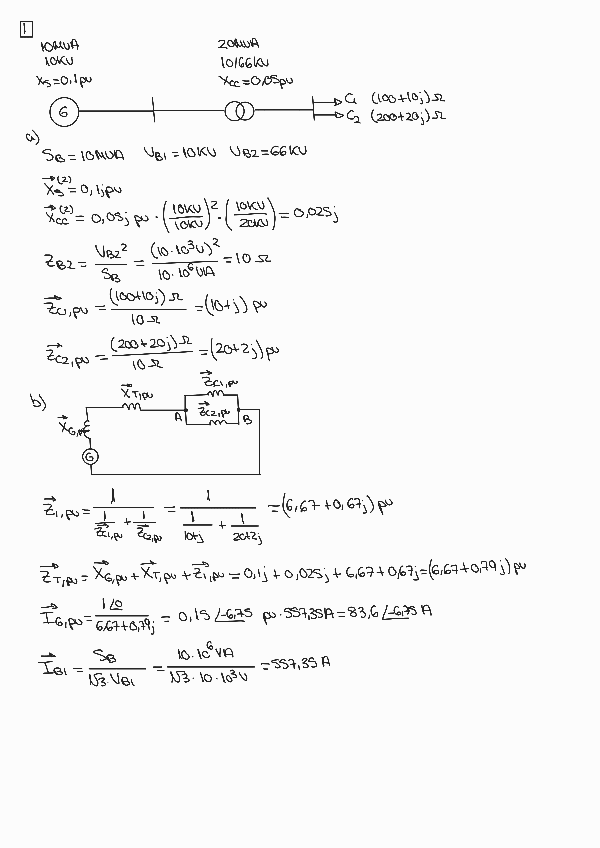 1
10MVA 20MVA
10KV 10/66KV
Xs=0,1pu Xcc=0,05pu
G C1 (100+10j)Ω
C2 (200+20j)Ω
a)
SB=10MVA VB1=10KV VB2=66KV
Xs(2)=0,1jpu
Xcc(2)=0,05j pu·(10KV/10KV)²·(10KV/20KV)=0,025j
ZB2=VB2²/SB=(10·10³V)²/10·10⁶VA=10Ω
ZC1,pu=(100+10j)Ω/10Ω=(10+j) pu
ZC2,pu=(200+20j)Ω/10Ω=(20+2j)pu
b) XT,pu ZC1,pu
XG,pu A ZC2,pu B
G
Z1,pu=1/(1/ZC1,pu+1/ZC2,pu)=1/(1/10+j+1/20+2j)=(6,67+0,67j) pu
ZT,pu=XG,pu+XT,pu+Z1,pu=0,1j+0,025j+6,67+0,67j=(6,67+0,79j) pu
IG,pu=1∠0/6,67+0,79j=0,15∠-6,75 pu·557,35A=83,6∠-6,75 A
IB1=SB/√3·VB1=10·10⁶VA/√3·10·10³V=557,35A